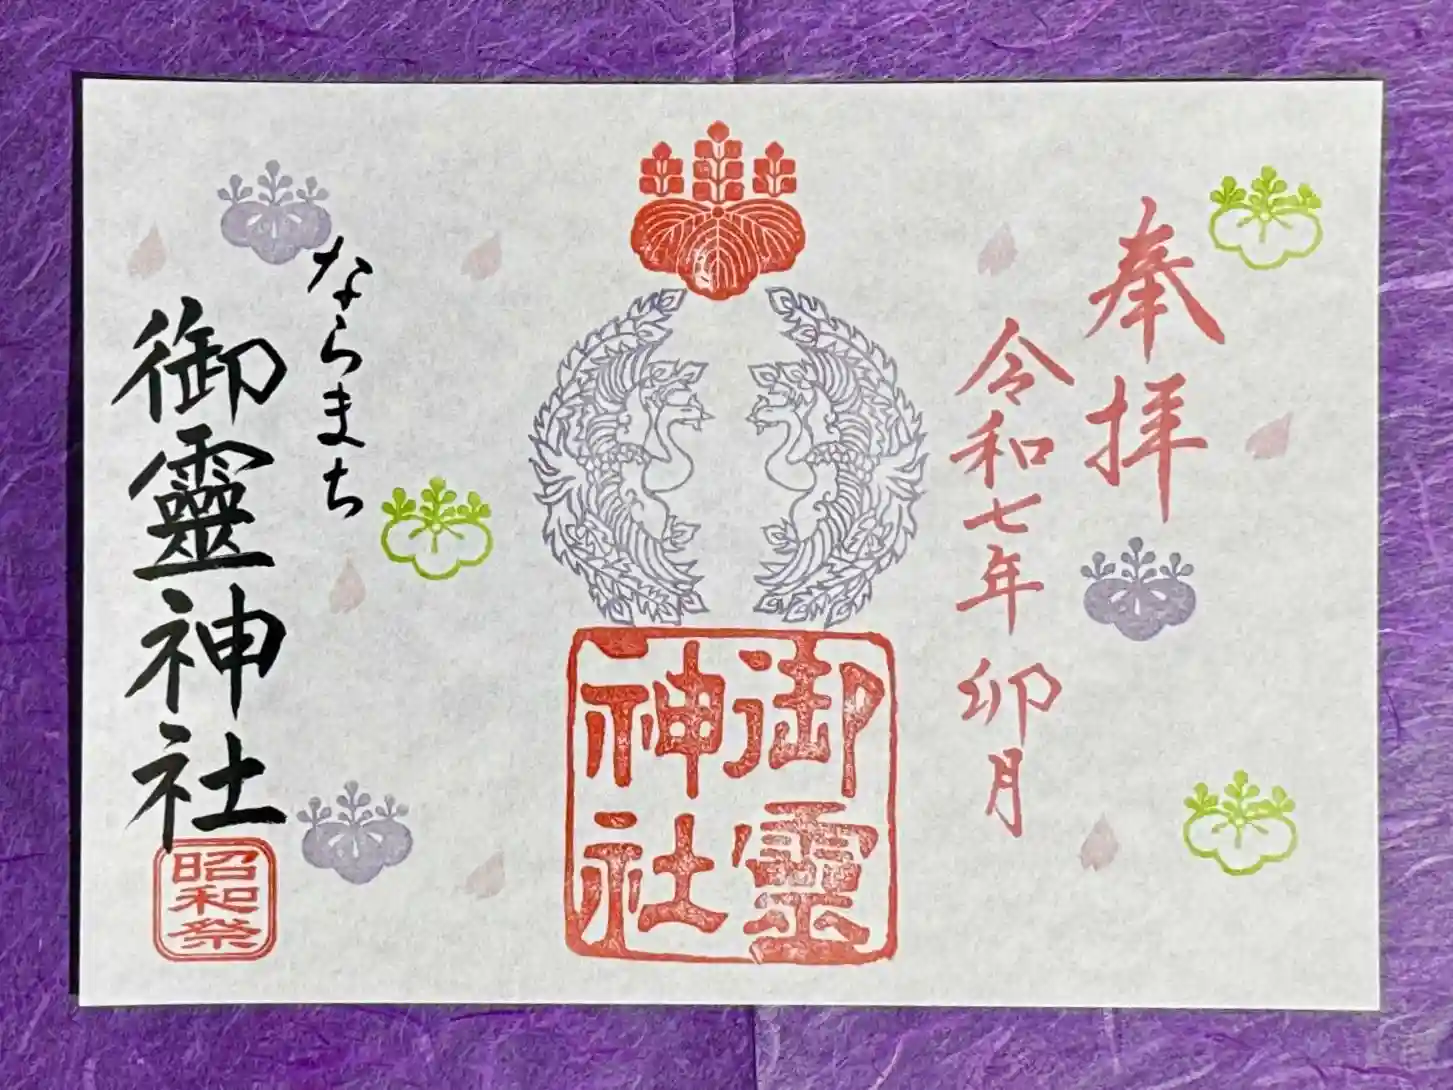 奉拝
令和七年 卯月
御靈
神社
ならまち
御靈神社
昭和祭